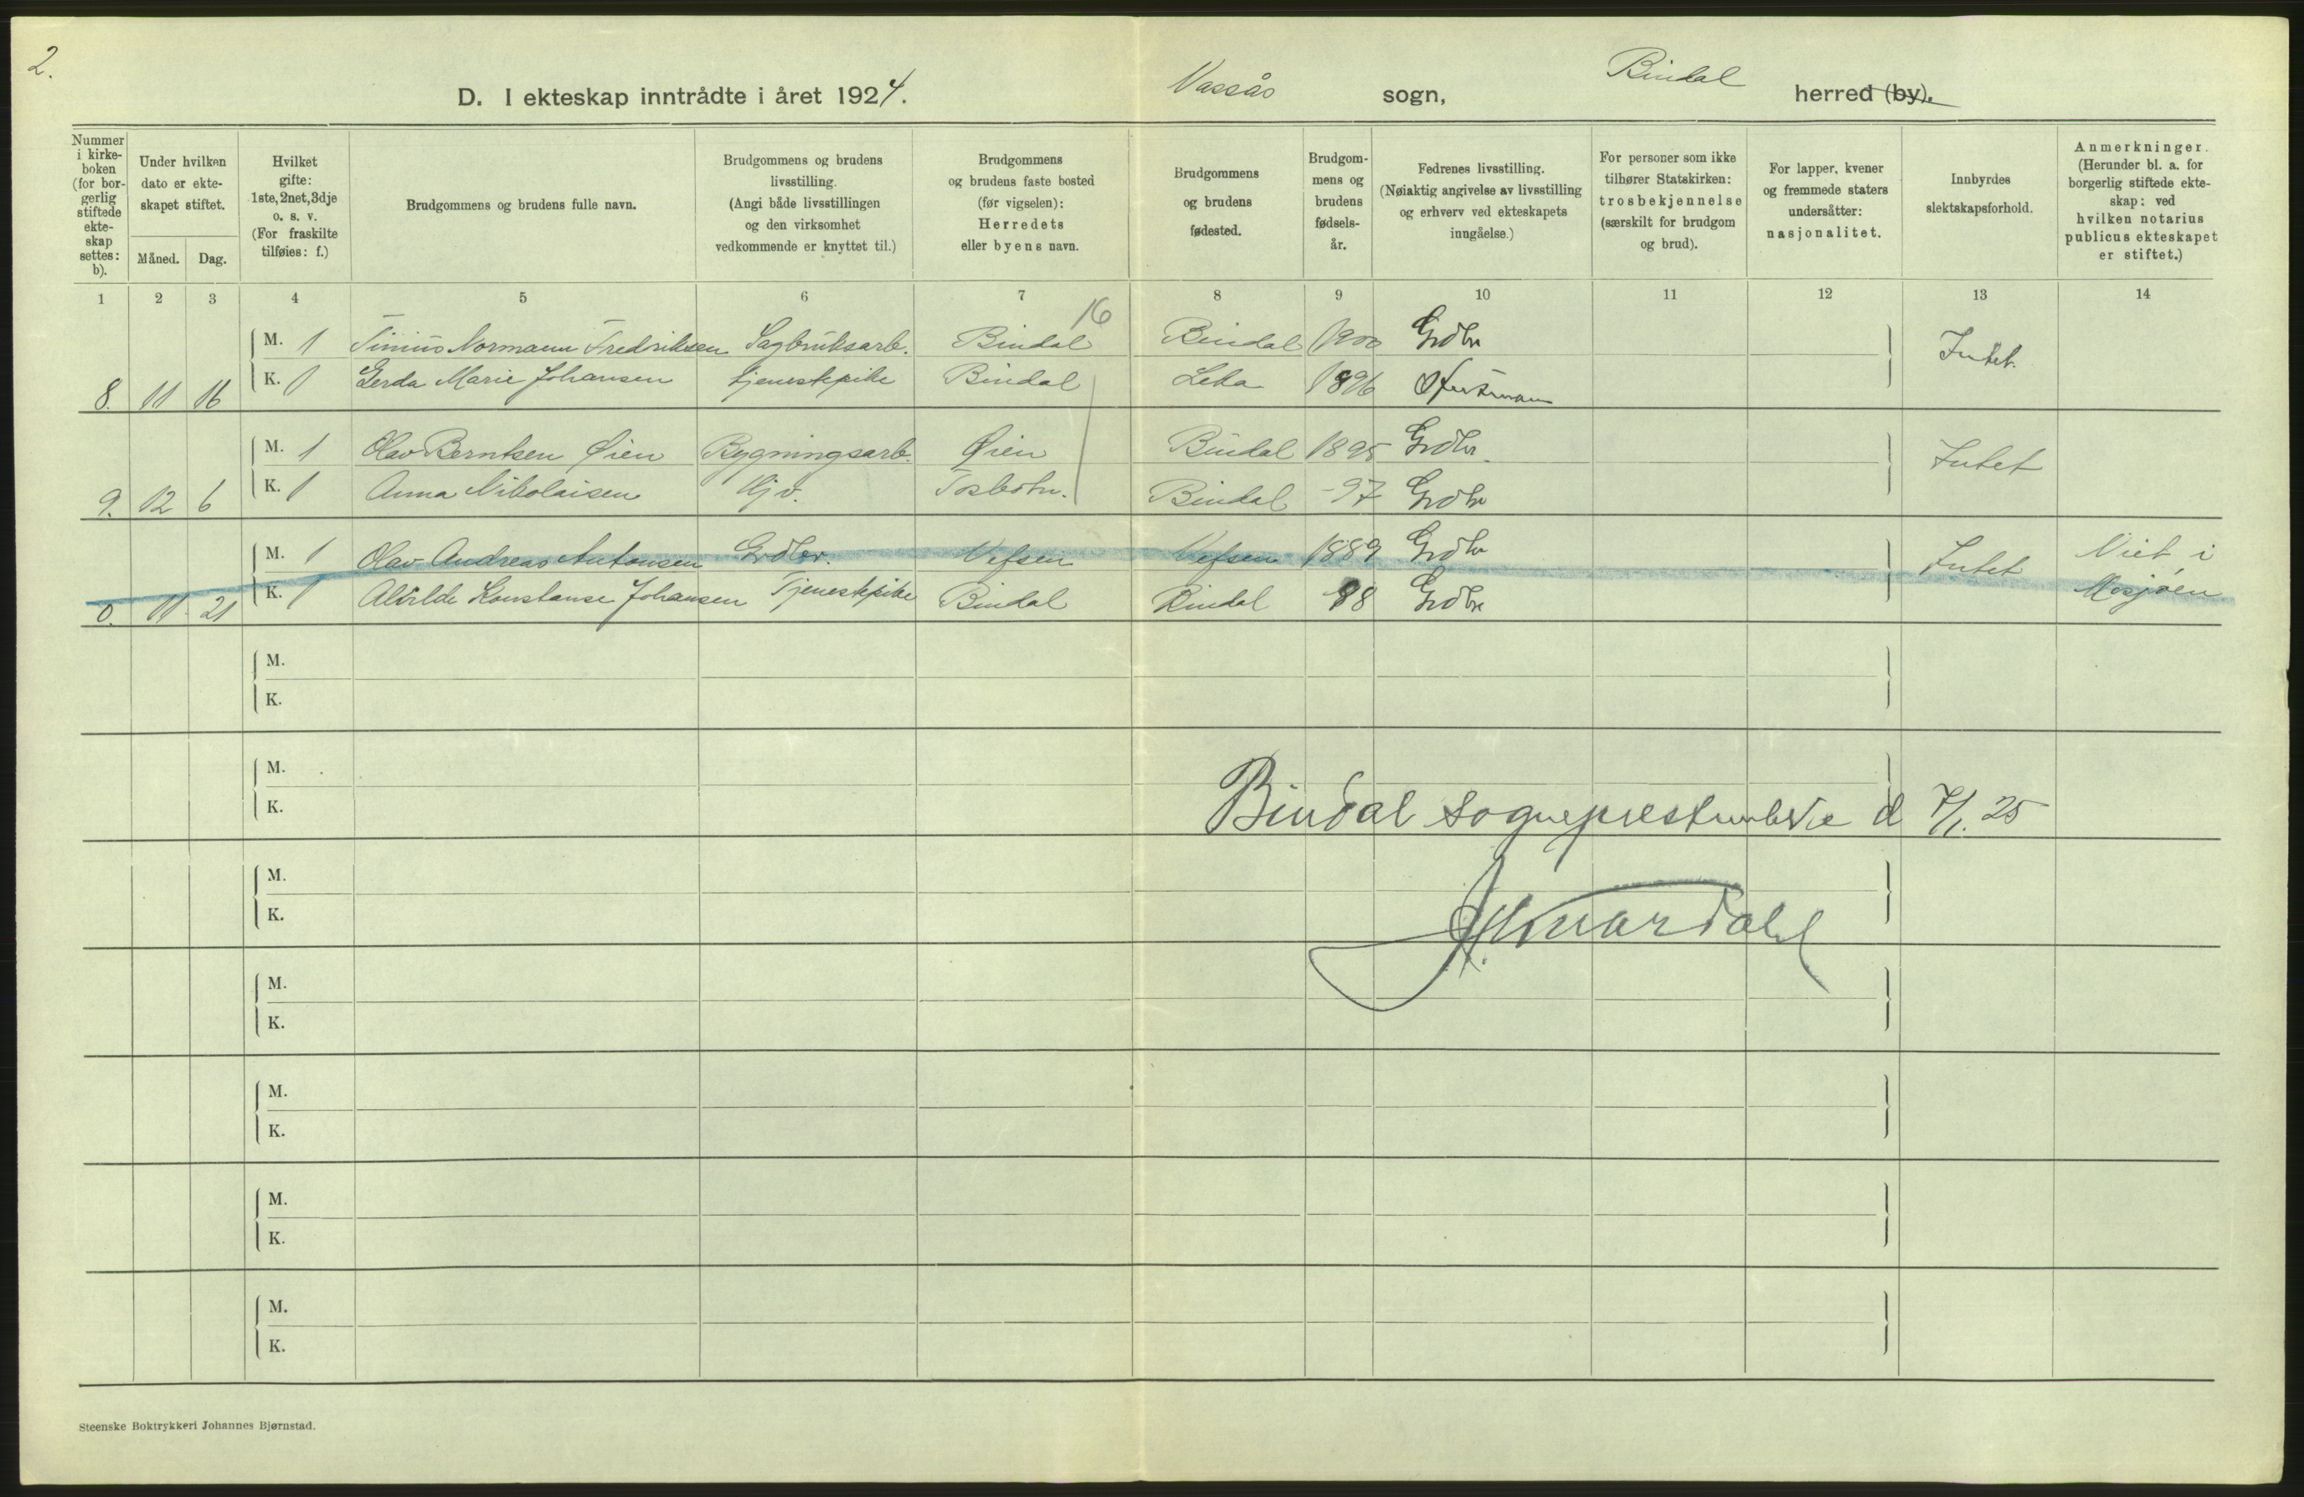 2.
D. I ekteskap inntrådte i året 1924. Vassås sogn, Bindal herred (by).
Nummer i kirke- boken (for bor- gerlig stiftede ekte- skap settes: b).
Under hvilken dato er ekte- skapet stiftet.
Måned. Dag.
Hvilket gifte: 1ste, 2net, 3dje o. s. v. (For fraskilte tilføies: f.)
Brudgommens og brudens fulle navn.
Brudgommens og brudens livsstilling. (Angi både livsstillingen og den virksomhet vedkommende er knyttet til.)
Brudgommens og brudens faste bosted (før vigselen): Herredets eller byens navn.
Brudgommens og brudens fødested.
Brudgom- mens og brudens fødsels- år.
Fedrenes livsstilling. (Nøiaktig angivelse av livsstilling og erhverv ved ekteskapets inngåelse.)
For personer som ikke tilhører Statskirken: trosbekjennelse (særskilt for brudgom og brud).
For lapper, kvener og fremmede staters undersåtter: nasjonalitet.
Innbyrdes slektskapsforhold.
Anmerkninger. (Herunder bl. a. for borgerlig stiftede ekte- skap: ved hvilken notarius publicus ekteskapet er stiftet.)
1 2 3 4 5 6 7 8 9 10 11 12 13 14
16
M. 1 Tinius Normann Fredriksen Sagbruksarb. Bindal Bindal 1900 Grdbr Intet.
8. 11 16 K. 1 Gerda Marie Johansen tjenestepike Bindal Leka 1896
M. 1 Olav Berntsen Øien Bygningsarb. Øien Bindal 1895 Grdbr. Intet
9. 12 6 K. 1 Anna Nikolaisen Hjv. Tosbotn. Bindal -97 Grdbr
M. 1 Olav Andreas Antonsen Grdbr. Vefsen Vefsen 1889 Grdbr Intet Viet i
0. 11 21 K. 1 Alvilde Konstanse Johansen Tjenestepike Bindal Bindal 88 Grdbr Mosjøen
M.
K.
M.
K.
Bindal sogneprestembede d 7/1. 25
M.
K.
M.
K.
M.
K.
M.
K.
M.
K.
Steenske Boktrykkeri Johannes Bjørnstad.